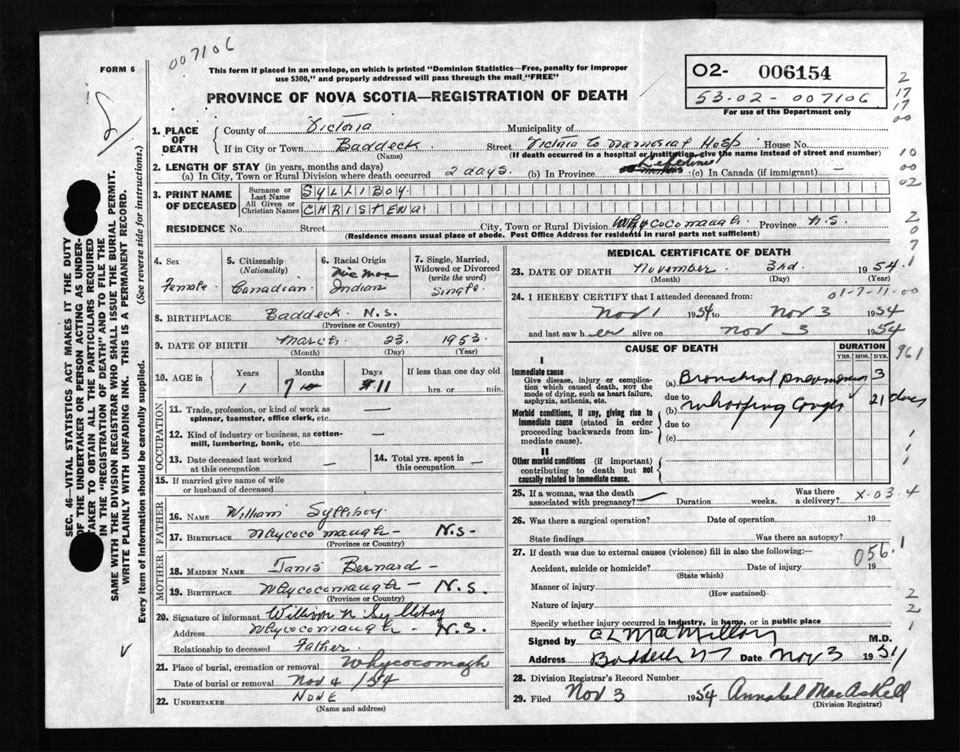 007106
FORM 6
This form if placed in an envelope, on which is printed "Dominion Statistics—Free, penalty for improper
use $300," and properly addressed will pass through the mail "FREE"
PROVINCE OF NOVA SCOTIA—REGISTRATION OF DEATH
O2- 006154
53.02 - 007106
For use of the Department only
SEC. 46—VITAL STATISTICS ACT MAKES IT THE DUTY
OF THE UNDERTAKER OR PERSON ACTING AS UNDER-
TAKER TO OBTAIN ALL THE PARTICULARS REQUIRED
IN THE "REGISTRATION OF DEATH" AND TO FILE THE
SAME WITH THE DIVISION REGISTRAR WHO SHALL ISSUE THE BURIAL PERMIT.
WRITE PLAINLY WITH UNFADING INK. THIS IS A PERMANENT RECORD.
Every item of information should be carefully supplied. (See reverse side for instructions.)
1. PLACE OF DEATH County of Victoria Municipality of
If in City or Town Baddeck Street Victoria Co Memorial Hosp House No.
(Name) (If death occurred in a hospital or institution, give the name instead of street and number)
2. LENGTH OF STAY (in years, months and days)
(a) In City, Town or Rural Division where death occurred 2 days. (b) In Province Lifetime (c) In Canada (if immigrant) —
3. PRINT NAME OF DECEASED Surname or Last Name SYLLIBOY
All Given or Christian Names CHRISTENA
RESIDENCE No. Street City, Town or Rural Division Whycocomaugh Province N.S.
(Residence means usual place of abode. Post Office Address for residents in rural parts not sufficient)
4. Sex Female
5. Citizenship (Nationality) Canadian
6. Racial Origin Mic Mac Indian
7. Single, Married, Widowed or Divorced (write the word) Single
8. BIRTHPLACE Baddeck N.S.
(Province or Country)
9. DATE OF BIRTH March 23 1953
(Month) (Day) (Year)
10. AGE in Years Months Days If less than one day old
1 7 11 hrs. or min.
OCCUPATION
11. Trade, profession, or kind of work as spinner, teamster, office clerk, etc. —
12. Kind of industry or business, as cotton-mill, lumbering, bank, etc. —
13. Date deceased last worked at this occupation —
14. Total yrs. spent in this occupation —
15. If married give name of wife or husband of deceased
FATHER
16. NAME William Sylliboy
17. BIRTHPLACE Whycocomaugh - N.S.
(Province or Country)
MOTHER
18. MAIDEN NAME Janis Bernard -
19. BIRTHPLACE Whycocomaugh - N.S.
(Province or Country)
20. Signature of informant William N Sylliboy
Address Whycocomaugh - N.S.
Relationship to deceased Father
21. Place of burial, cremation or removal Whycocomagh
Date of burial or removal Nov 4 /54
22. UNDERTAKER NONE
(Name and address)
MEDICAL CERTIFICATE OF DEATH
23. DATE OF DEATH November 3rd 1954
(Month) (Day) (Year)
24. I HEREBY CERTIFY that I attended deceased from: 01-7-11-00
Nov 1 1954 to Nov 3 1954
and last saw her alive on Nov 3 1954
CAUSE OF DEATH DURATION
YRS. MOS. DYS.
I
Immediate cause
Give disease, injury or complication which caused death, NOT the mode of dying, such as heart failure, asphyxia, asthenia, etc.
(a) Bronchial pneumonia 3
due to
Morbid conditions, if any, giving rise to immediate cause (stated in order proceeding backwards from immediate cause).
(b) Whooping Cough 21 days
due to
(c)
II
Other morbid conditions (if important) contributing to death but not causally related to immediate cause.
25. If a woman, was the death associated with pregnancy? — Duration weeks. Was there a delivery? X.03.4
26. Was there a surgical operation? Date of operation 19
State findings Was there an autopsy?
27. If death was due to external causes (violence) fill in also the following:— 056.1
Accident, suicide or homicide? Date of injury 19
(State which)
Manner of injury
(How sustained)
Nature of injury
Specify whether injury occurred in industry, in home, or in public place
Signed by C L MacMillan M.D.
Address Baddeck Date Nov 3 1954
28. Division Registrar's Record Number
29. Filed Nov 3 1954 Annabel MacAskell
(Division Registrar)
2
17
17
00
10
00
02
2
0
7
1
961
1
1
1
2
2
1